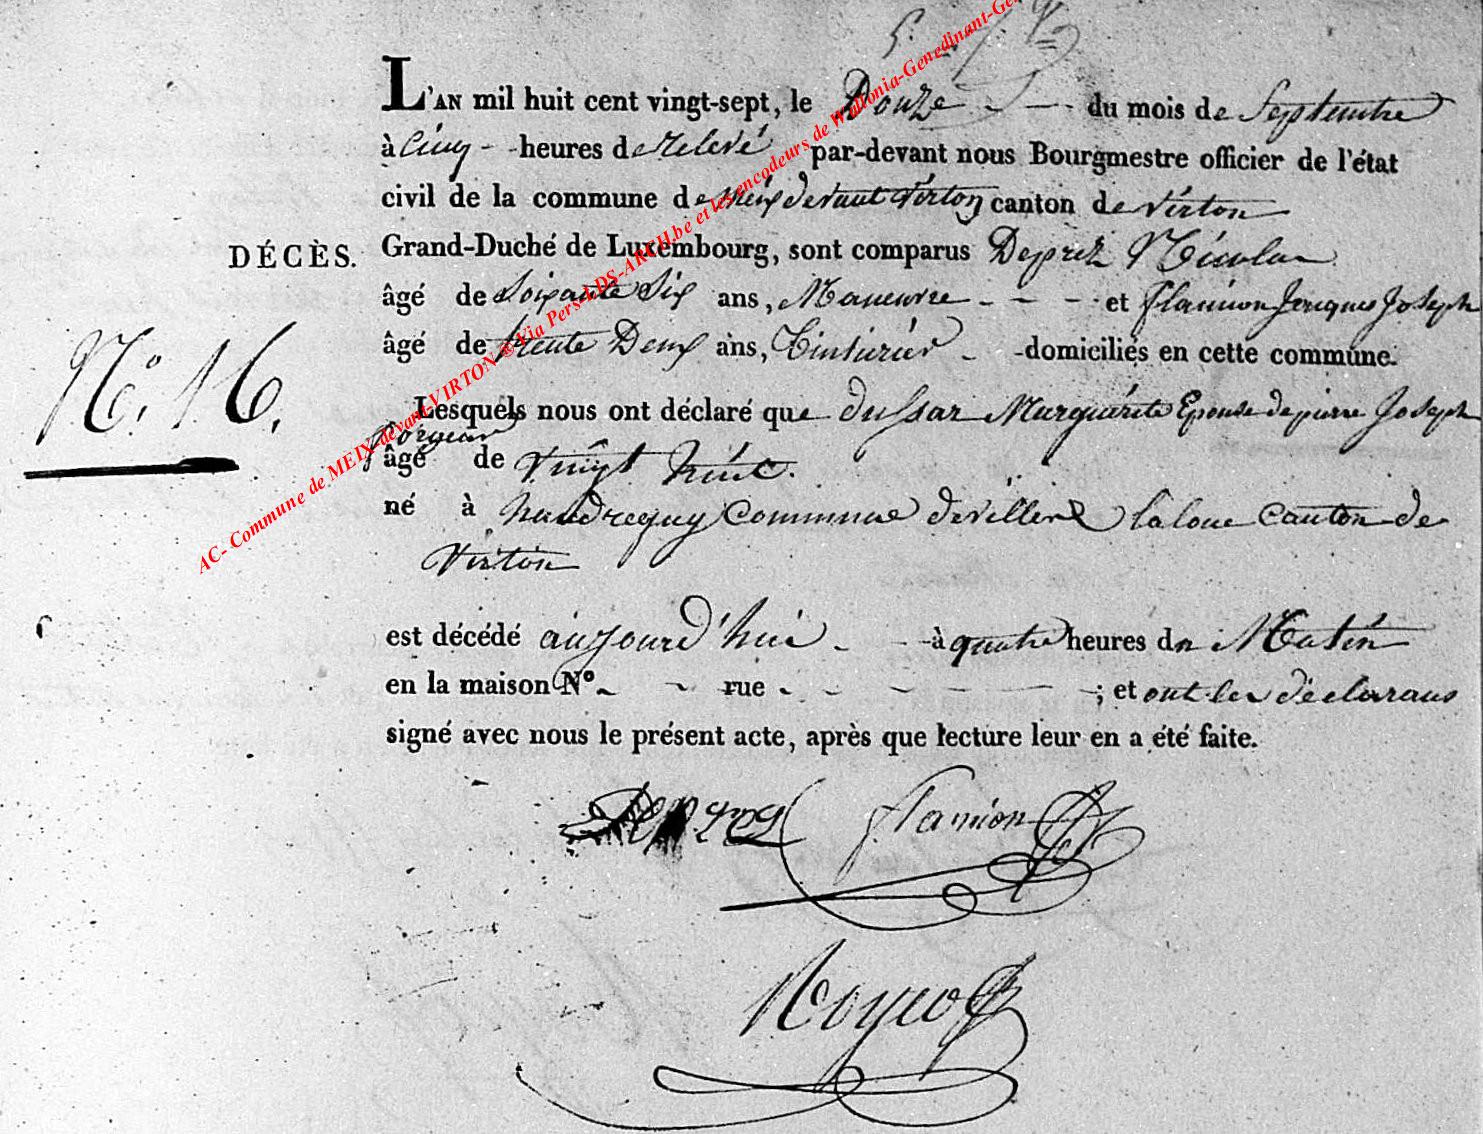 L'AN mil huit cent vingt-sept, le Douze du mois de Septembre
à Cinq heures de relevé par-devant nous Bourgmestre officier de l'état
civil de la commune de Meix devant Virton canton de Virton
DÉCÈS. Grand-Duché de Luxembourg, sont comparus Deprez Nicolas
âgé de Soixante Six ans, Maneuvre et flamion Jacques Joseph
âgé de trente Deux ans, Tinturier domiciliés en cette commune.
N.° 16.
Lesquels nous ont déclaré que dussar Marguérite Epouse de pierre Joseph
âgé de vingt huit.
né à houdregny Commune de villers la loue canton de
Virton
est décédé aujourd'hui à quatre heures du Matin
en la maison N° rue ; et ont les déclarans
signé avec nous le présent acte, après que lecture leur en a été faite.
flamion
AC- Commune de MEIX-devant-VIRTON ® Via Pers-LDS-ARCH.be et les encodeurs de Wallonia-Genedinant-Ge